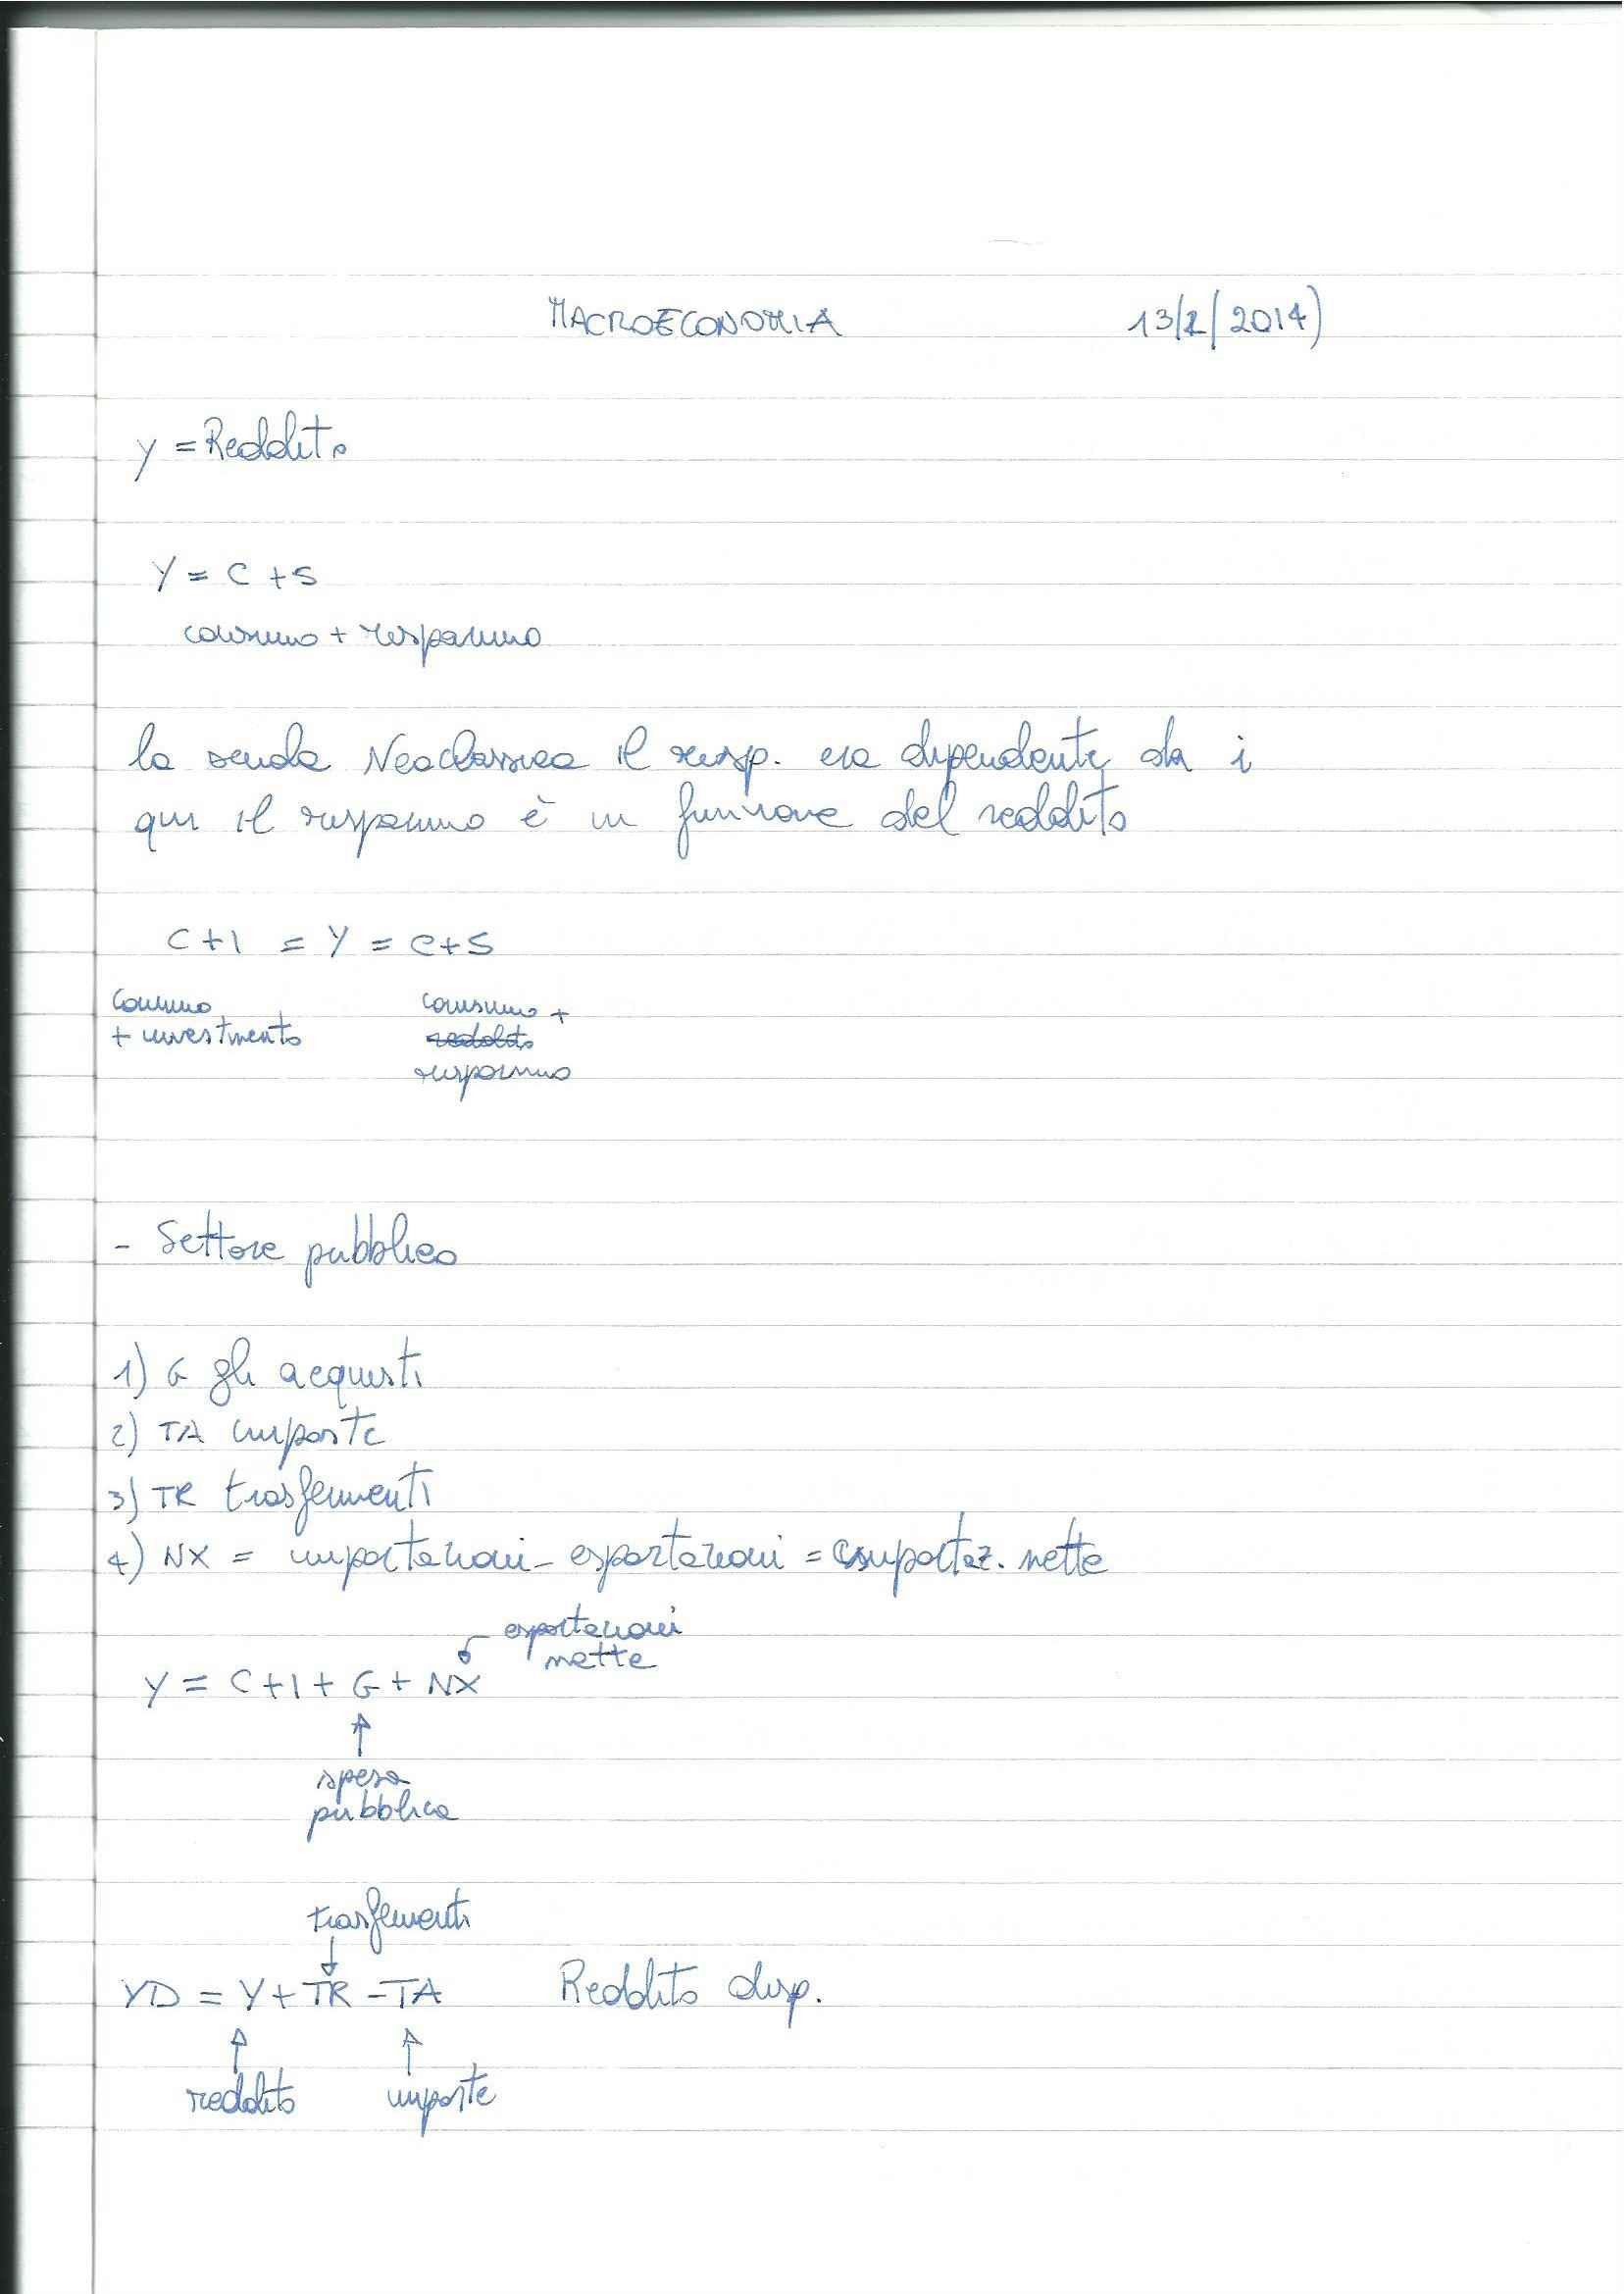 MACROECONOMIA 13/2/2014)
y = Reddito
Y = C + S
consumo + risparmio
la scuola Neoclassica il risp. era dipendente da i
qui il risparmio è in funzione del reddito
C + I = Y = C + S
Consumo consumo +
+ investimento reddito
risparmio
- Settore pubblico
1) G gli acquisti
2) TA imposte
3) TR trasferimenti
4) NX = importazioni - esportazioni = nette
esportazioni
nette
Y = C + I + G + NX
spesa
pubblica
trasferimenti
YD = Y + TR - TA Reddito disp.
reddito imposte